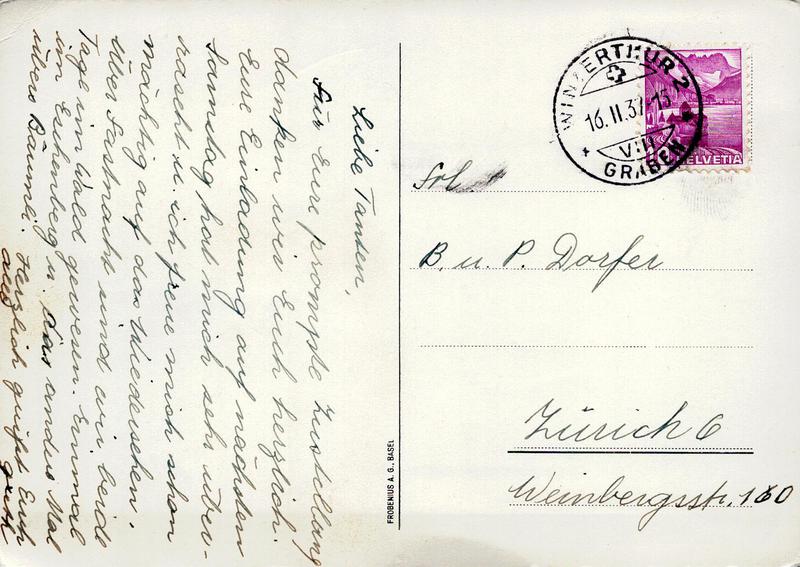 Liebe Tanten,
Für Eure prompte Zustellung
danken wir Euch herzlich.
Eure Einladung auf nächsten
Samstag hat mich sehr über-
rascht u. ich freue mich schon
mächtig auf das Wiedersehen.
Über Fastnacht sind wir beide
Tage im Wald gewesen. Einmal
im Eschenberg u. das andere Mal
übers Bäumli. Herzlich grüsst Euch
FROBENIUS A. G., BASEL
WINTERTHUR 2
16.II.37-15
VIII
GRABEN
HELVETIA
Frl.
B. u. P. Dorfer
Zürich 6
Weinbergstr. 160